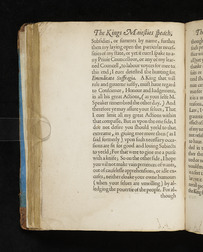 The Kings Maiesties speach,
Subsidies, or summes by name, further
then my laying open the particular necessi-
ties of my state, or yet if euer I spake to a-
ny Priuie Councellour, or any of my lear-
ned Counsell, to labour voyces for me to
this end; I euer detested the hunting for
Emendicata suffragia. A King that will
rule and gouerne iustly, must haue regard
to Conscience, Honour and Iudgement,
in all his great Actions, (as your
Speaker remembred the other day.) And
therefore yee may assure your selues, That
I euer limit all my great Actions within
that compasse. But as vpon the one side, I
doe not desire you should yeeld to that
extreame, in giuing me more then (as I
said formerly) vpon such necessary occa-
sions are fit for good and louing Subiects
to yeeld; For that were to giue me a purse
with a knife: So on the other side, I hope
you will not make vaine pretences of wants,
out of causelesse apprehensions, or idle ex-
cuses, neither cloake your owne humours
(when your selues are vnwilling) by al-
ledging the pouertie of the people. For al-
though